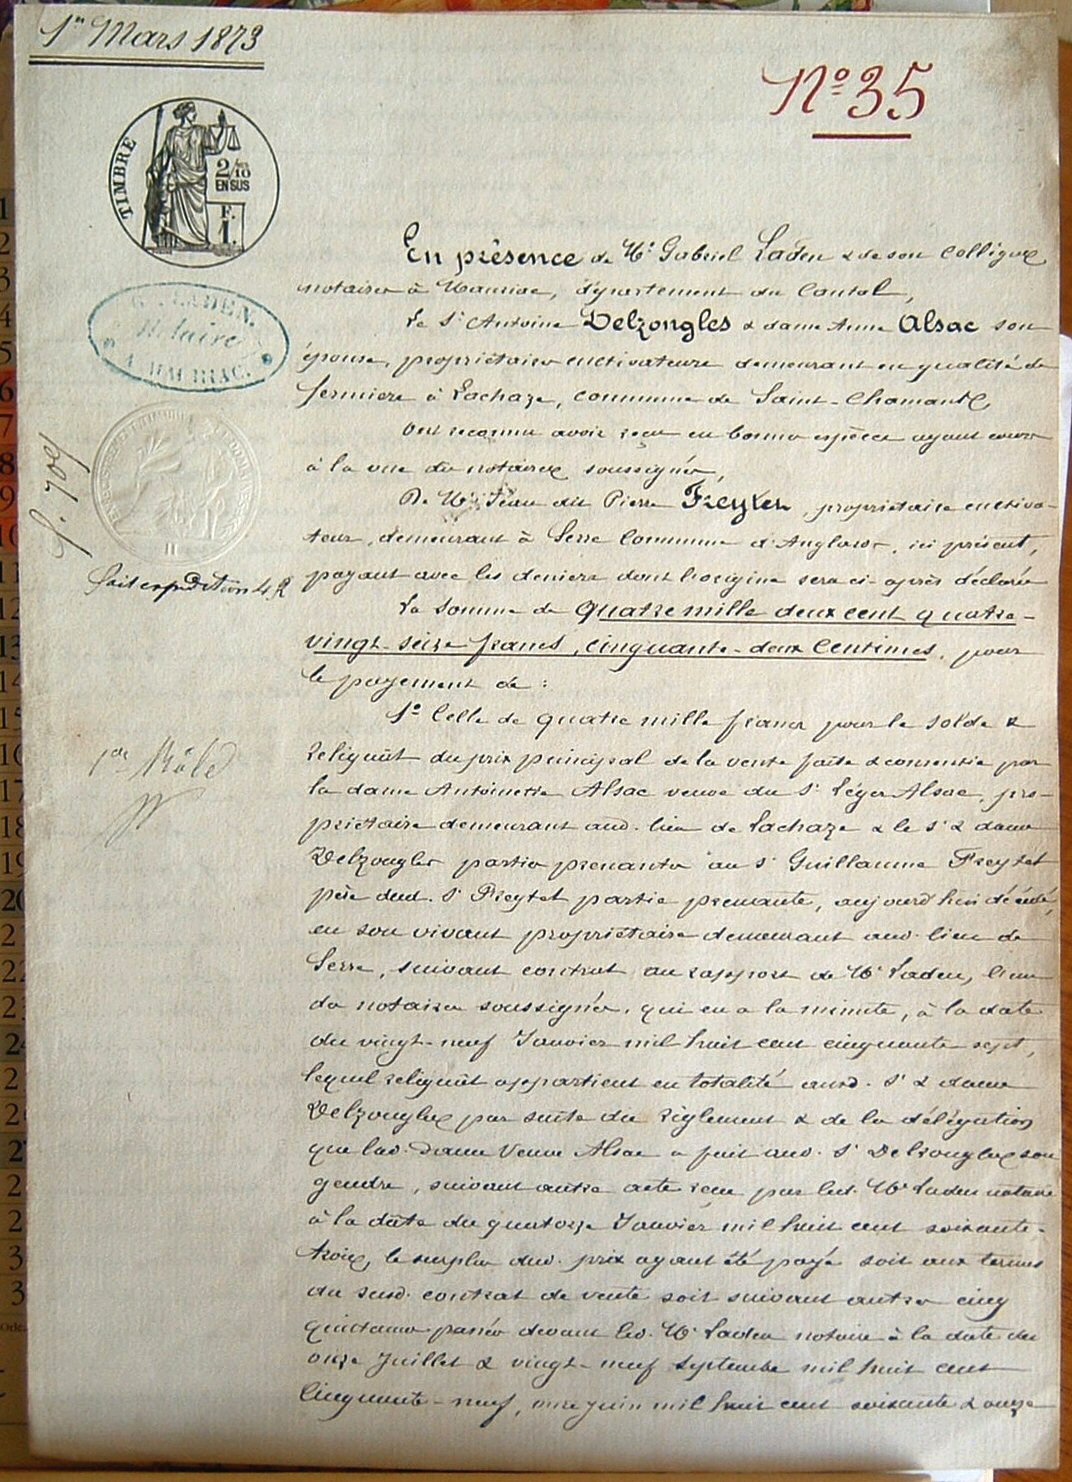 1er Mars 1873
No 35
TIMBRE
2/10
EN SUS
F.
1.
G. LADEN.
Notaire
A MAURIAC.
f. 709
fait expédition 4 R
1er Rôle
En présence de Me Gabriel Laden & de son collègue
notaires à Mauriac, département du Cantal,
Le Sr Antoine Delzongles & dame Anne Alsac son
épouse, propriétaires cultivateurs demeurant en qualité de
fermiers à Lachaze, commune de Saint-Chamant,
Ont reconnu avoir reçu en bonnes espèces ayant cours
à la vue des notaires soussignés,
De Mr Jean dit Pierre Freytet, propriétaire cultiva-
teur, demeurant à Serre Commune d'Anglards, ici présent,
payant avec les deniers dont l'origine sera ci-après déclarée
La somme de quatre mille deux cent quatre-
vingt-seize francs, cinquante-deux centimes, pour
le payement de :
1o Celle de quatre mille francs pour le solde &
reliquat du prix principal de la vente faite & consentie par
la dame Antoinette Alsac veuve du Sr Léger Alsac, pro-
priétaire demeurant aud. lieu de Lachaze & le Sr & dame
Delzongles parties prenantes au Sr Guillaume Freytet
père dud. Sr Freytet partie prenante, aujourd'hui décédé,
en son vivant propriétaire demeurant aud. lieu de
Serre, suivant contrat au rapport de Me Laden, l'un
des notaires soussignés, qui en a la minute, à la date
du vingt-neuf Janvier mil huit cent cinquante sept,
lequel reliquat appartient en totalité auxd. Sr & dame
Delzongles par suite du règlement & de la délégation
que lad. dame Veuve Alsac a fait aud. Sr Delzongles son
gendre, suivant autre acte reçu par led. Me Laden notaire
à la date du quatorze Janvier mil huit cent soixante-
trois, le surplus dud. prix ayant été payé soit aux termes
du susd. contrat de vente soit suivant autres cinq
quittances passées devant led. Me Laden notaire à la date des
onze Juillet & vingt-neuf septembre mil huit cent
cinquante-neuf, onze juin mil huit cent soixante & onze